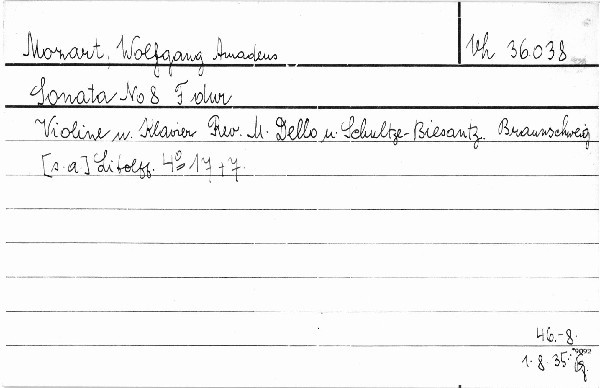 Mozart, Wolfgang Amadeus
Vh 36.038
Sonata No 8 F dur
Violine u. Klavier Rev. M. Dello u. Schultze-Biesantz. Braunschweig
[s.a] Litolff. 4º 17+7.
46.-8.
1.8.35.